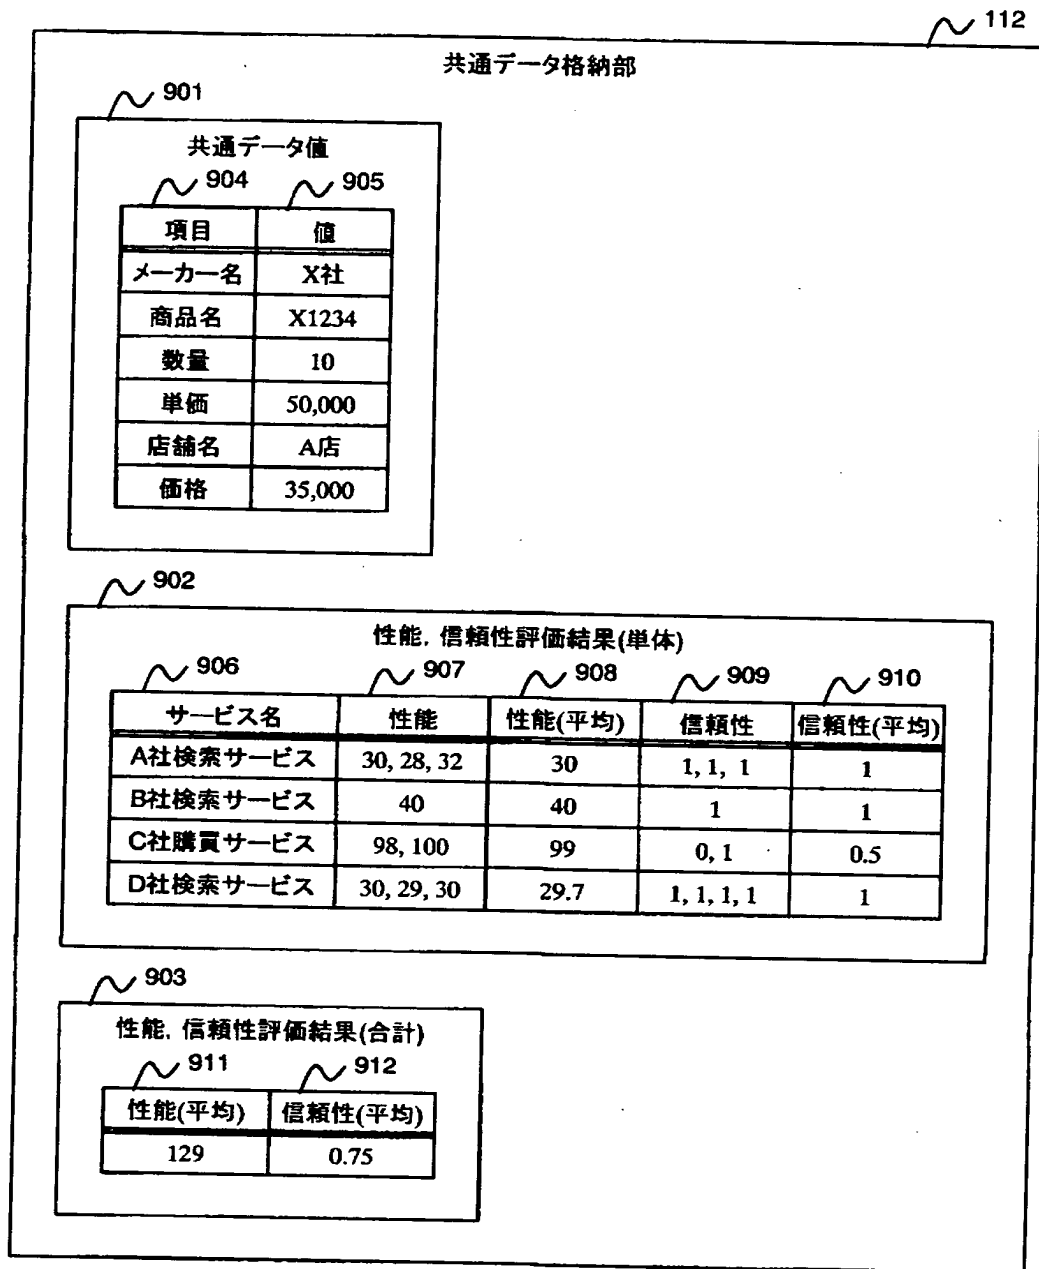 112
共通データ格納部
901
共通データ値
904 905
項目 値
メーカー名 X社
商品名 X1234
数量 10
単価 50,000
店舗名 A店
価格 35,000
902
性能, 信頼性評価結果(単体)
906 907 908 909 910
サービス名 性能 性能(平均) 信頼性 信頼性(平均)
A社検索サービス 30, 28, 32 30 1, 1, 1 1
B社検索サービス 40 40 1 1
C社購買サービス 98, 100 99 0, 1 0.5
D社検索サービス 30, 29, 30 29.7 1, 1, 1, 1 1
903
性能, 信頼性評価結果(合計)
911 912
性能(平均) 信頼性(平均)
129 0.75